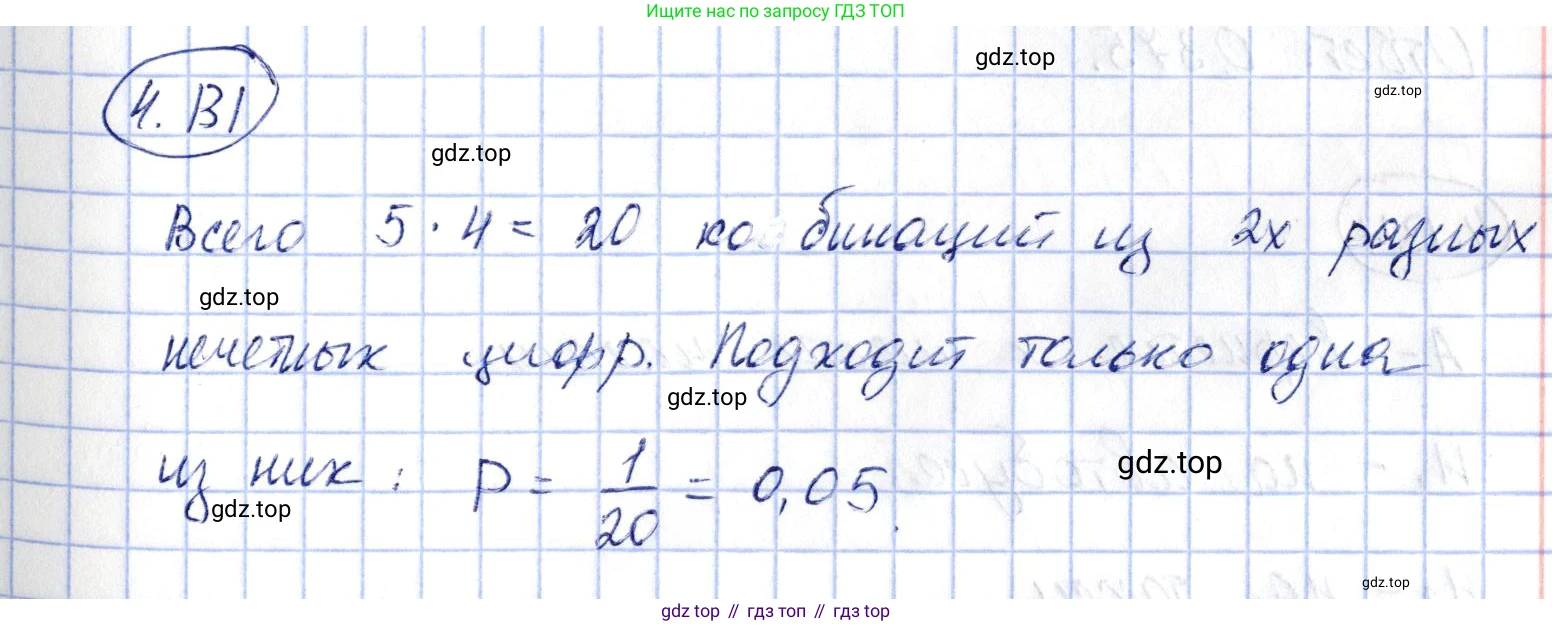 Ищите нас по запросу ГДЗ ТОП
gdz.top
gdz.top
4. В1
gdz.top
Всего 5 · 4 = 20 комбинаций из 2х разных
gdz.top
нечетных цифр. Подходит только одна
gdz.top
из них : P = 1/20 = 0,05.
gdz.top
gdz.top
gdz.top
gdz.top // гдз топ // гдз top